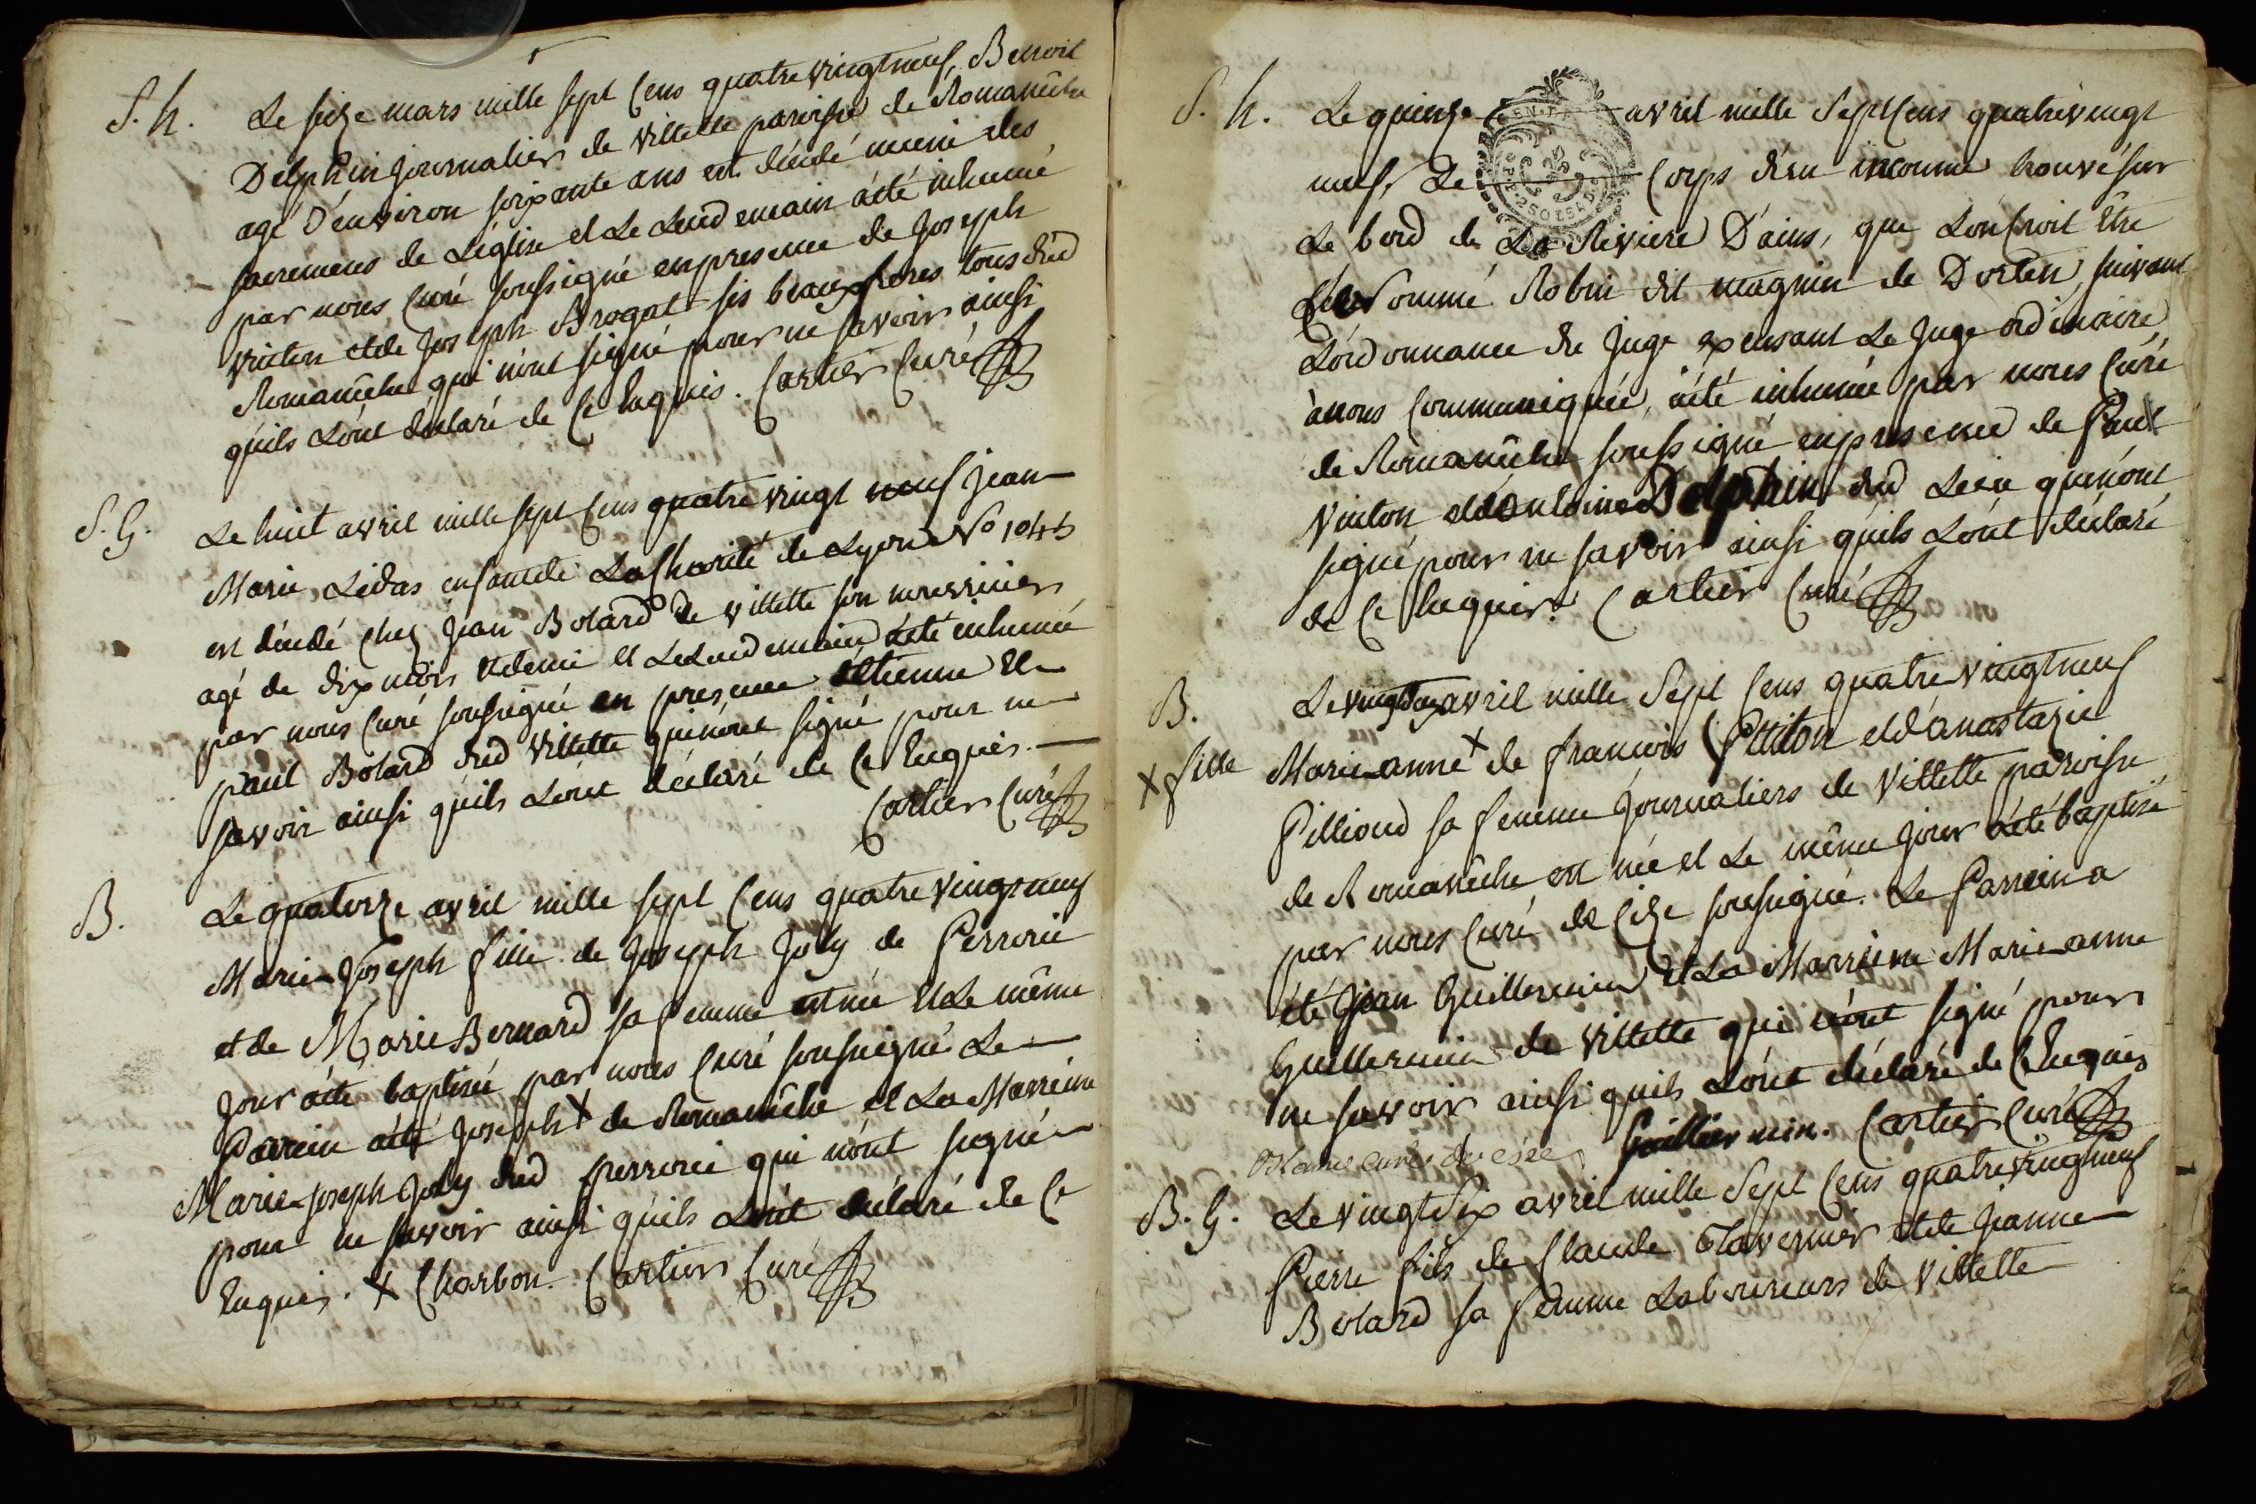 S. h. Le seize mars mille sept Cens quatre vingt neuf, Benoit
Delphin journalier de Villette paroisse de Romanêche
agé d'environ soixante ans est décédé muni des
sacremens de L'église et Le Lendemain a été inhumé
par nous Curé soussigné en presence de Joseph
Vuiton et de Joseph Brogat ses beaux freres tous dud
Romanêche qui n'ont signé pour ne savoir ainsi
qu'ils L'ont déclaré de Ce Enquis. Cartier Curé
S. G. Le huit avril mille sept Cens quatre vingt neuf Jean
Marie Lidas enfant de La Charité de Lyon N° 1045
est décédé Chez Jean Bolard de Villette son nourricier
agé de dix mois et demi et Le Lendemain a été inhumé
par nous Curé soussigné en presence d'Etienne et
paul Bolard dud Villette qui n'ont signé pour ne
savoir ainsi qu'ils L'ont déclaré de Ce Enquis.
Cartier Curé
B. Le quatorze avril mille sept Cens quatre vingt neuf
Marie Joseph fille de Joseph Joly de Perroui
et de Marie Bernard sa femme est née et Le même
Jour a été baptisée par nous Curé soussigné Le
Parrein a été Joseph X de Romanêche et La Marreine
Marie Joseph Joly dud perroui qui n'ont signé
pour ne savoir ainsi qu'ils L'ont déclaré de Ce
Enquis. X Charbon. Cartier Curé
S. h. Le quinze avril mille Sept Cens quatre vingt
neuf, Le Corps d'un inconnu trouvé sur
Le bord de La Riviere D'ains, que L'on Croit être
Le Nommé Robin dit magnin de Dorten, suivant
L'ordonnance du Juge exensant Le Juge ordinaire
à nous Communiquée, a été inhumé par nous Curé
de Romanêche soussigné en presence de Paul
Vuiton et d'Antoine Delphin dud Lieu qui n'ont
signé pour ne savoir ainsi qu'ils L'ont déclaré
de Ce Enquis. Cartier Curé
B. Le vingt avril mille Sept Cens quatre vingt neuf
X fille Marie anne X de francois Pttiton et d'anastazie
Pilliond sa femme Journaliers de Villette paroisse
de Romanêche est née et Le même Jour a été baptisé
par nous Curé de Cize soussigné. Le Parrein a
été Jean Guillermin et La Marreine Marie anne
Guillermin de Villette qui n'ont signé pour
ne savoir ainsi qu'ils L'ont déclaré de Ce Enquis
Guillermin. Cartier Curé
B. G. Le vingt Six avril mille Sept Cens quatre vingt neuf
Pierre fils de Claude Tavernier et de Jeanne
Bolard sa femme Laboureurs de Villette